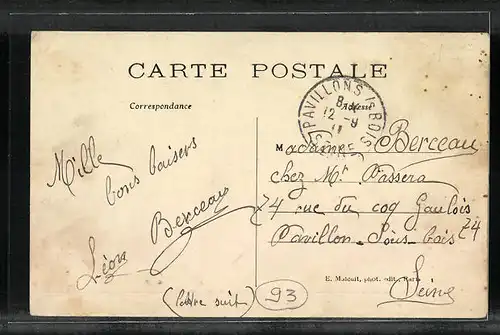 CARTE POSTALE
Correspondance
Adresse
PAVILLONS Is BOIS
8
12 -9
11
SEINE
Mille
bons baisers
Léon Berceau
(lettre suit)
Madame Berceau
chez Mr Passera
74 rue du coq Gaulois 74
Pavillon-Sous-bois
Seine
E. Malcuit, phot. édit., Paris
93